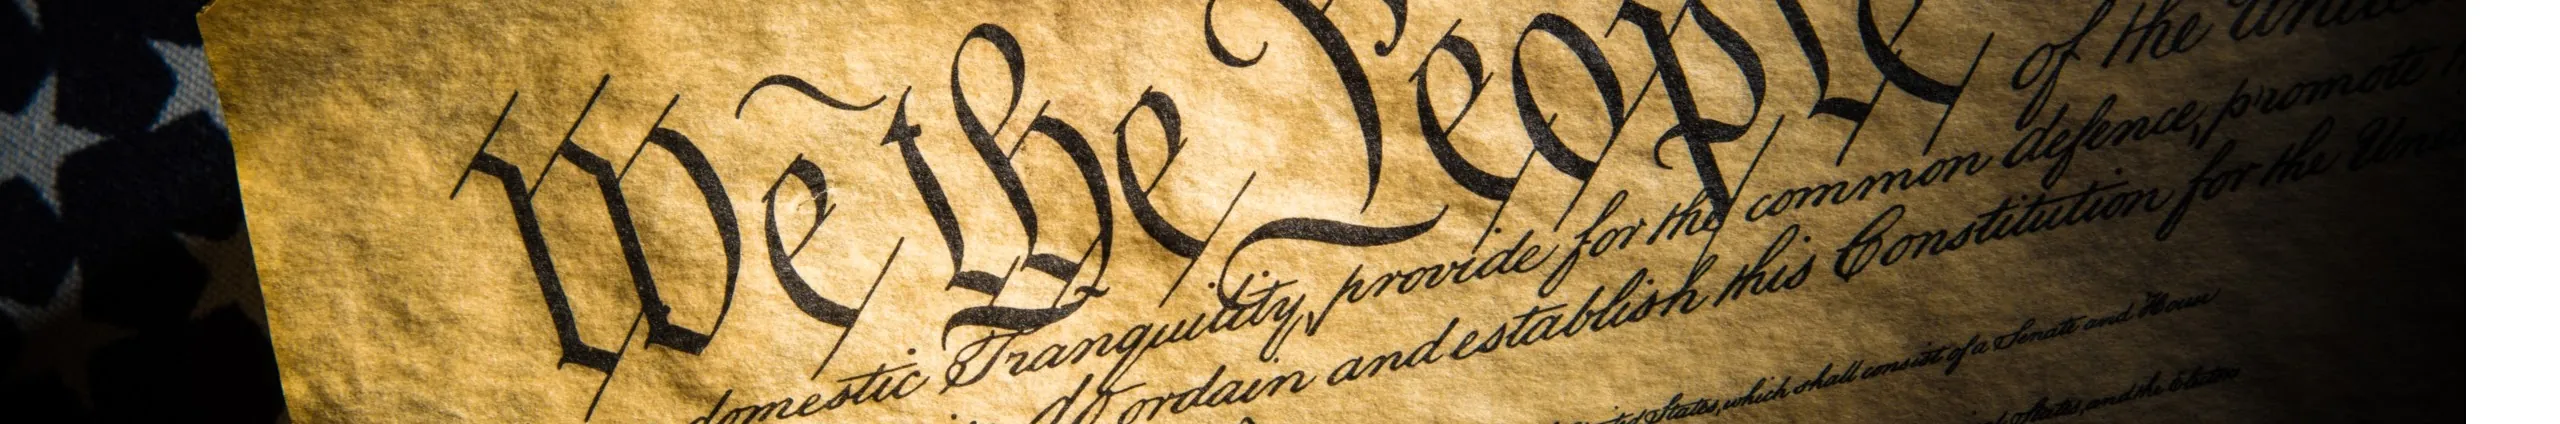 We the People of the United
domestic Tranquility, provide for the common defence, promote
do ordain and establish this Constitution for the United
States, which shall consist of a Senate and House
States, and the Electors